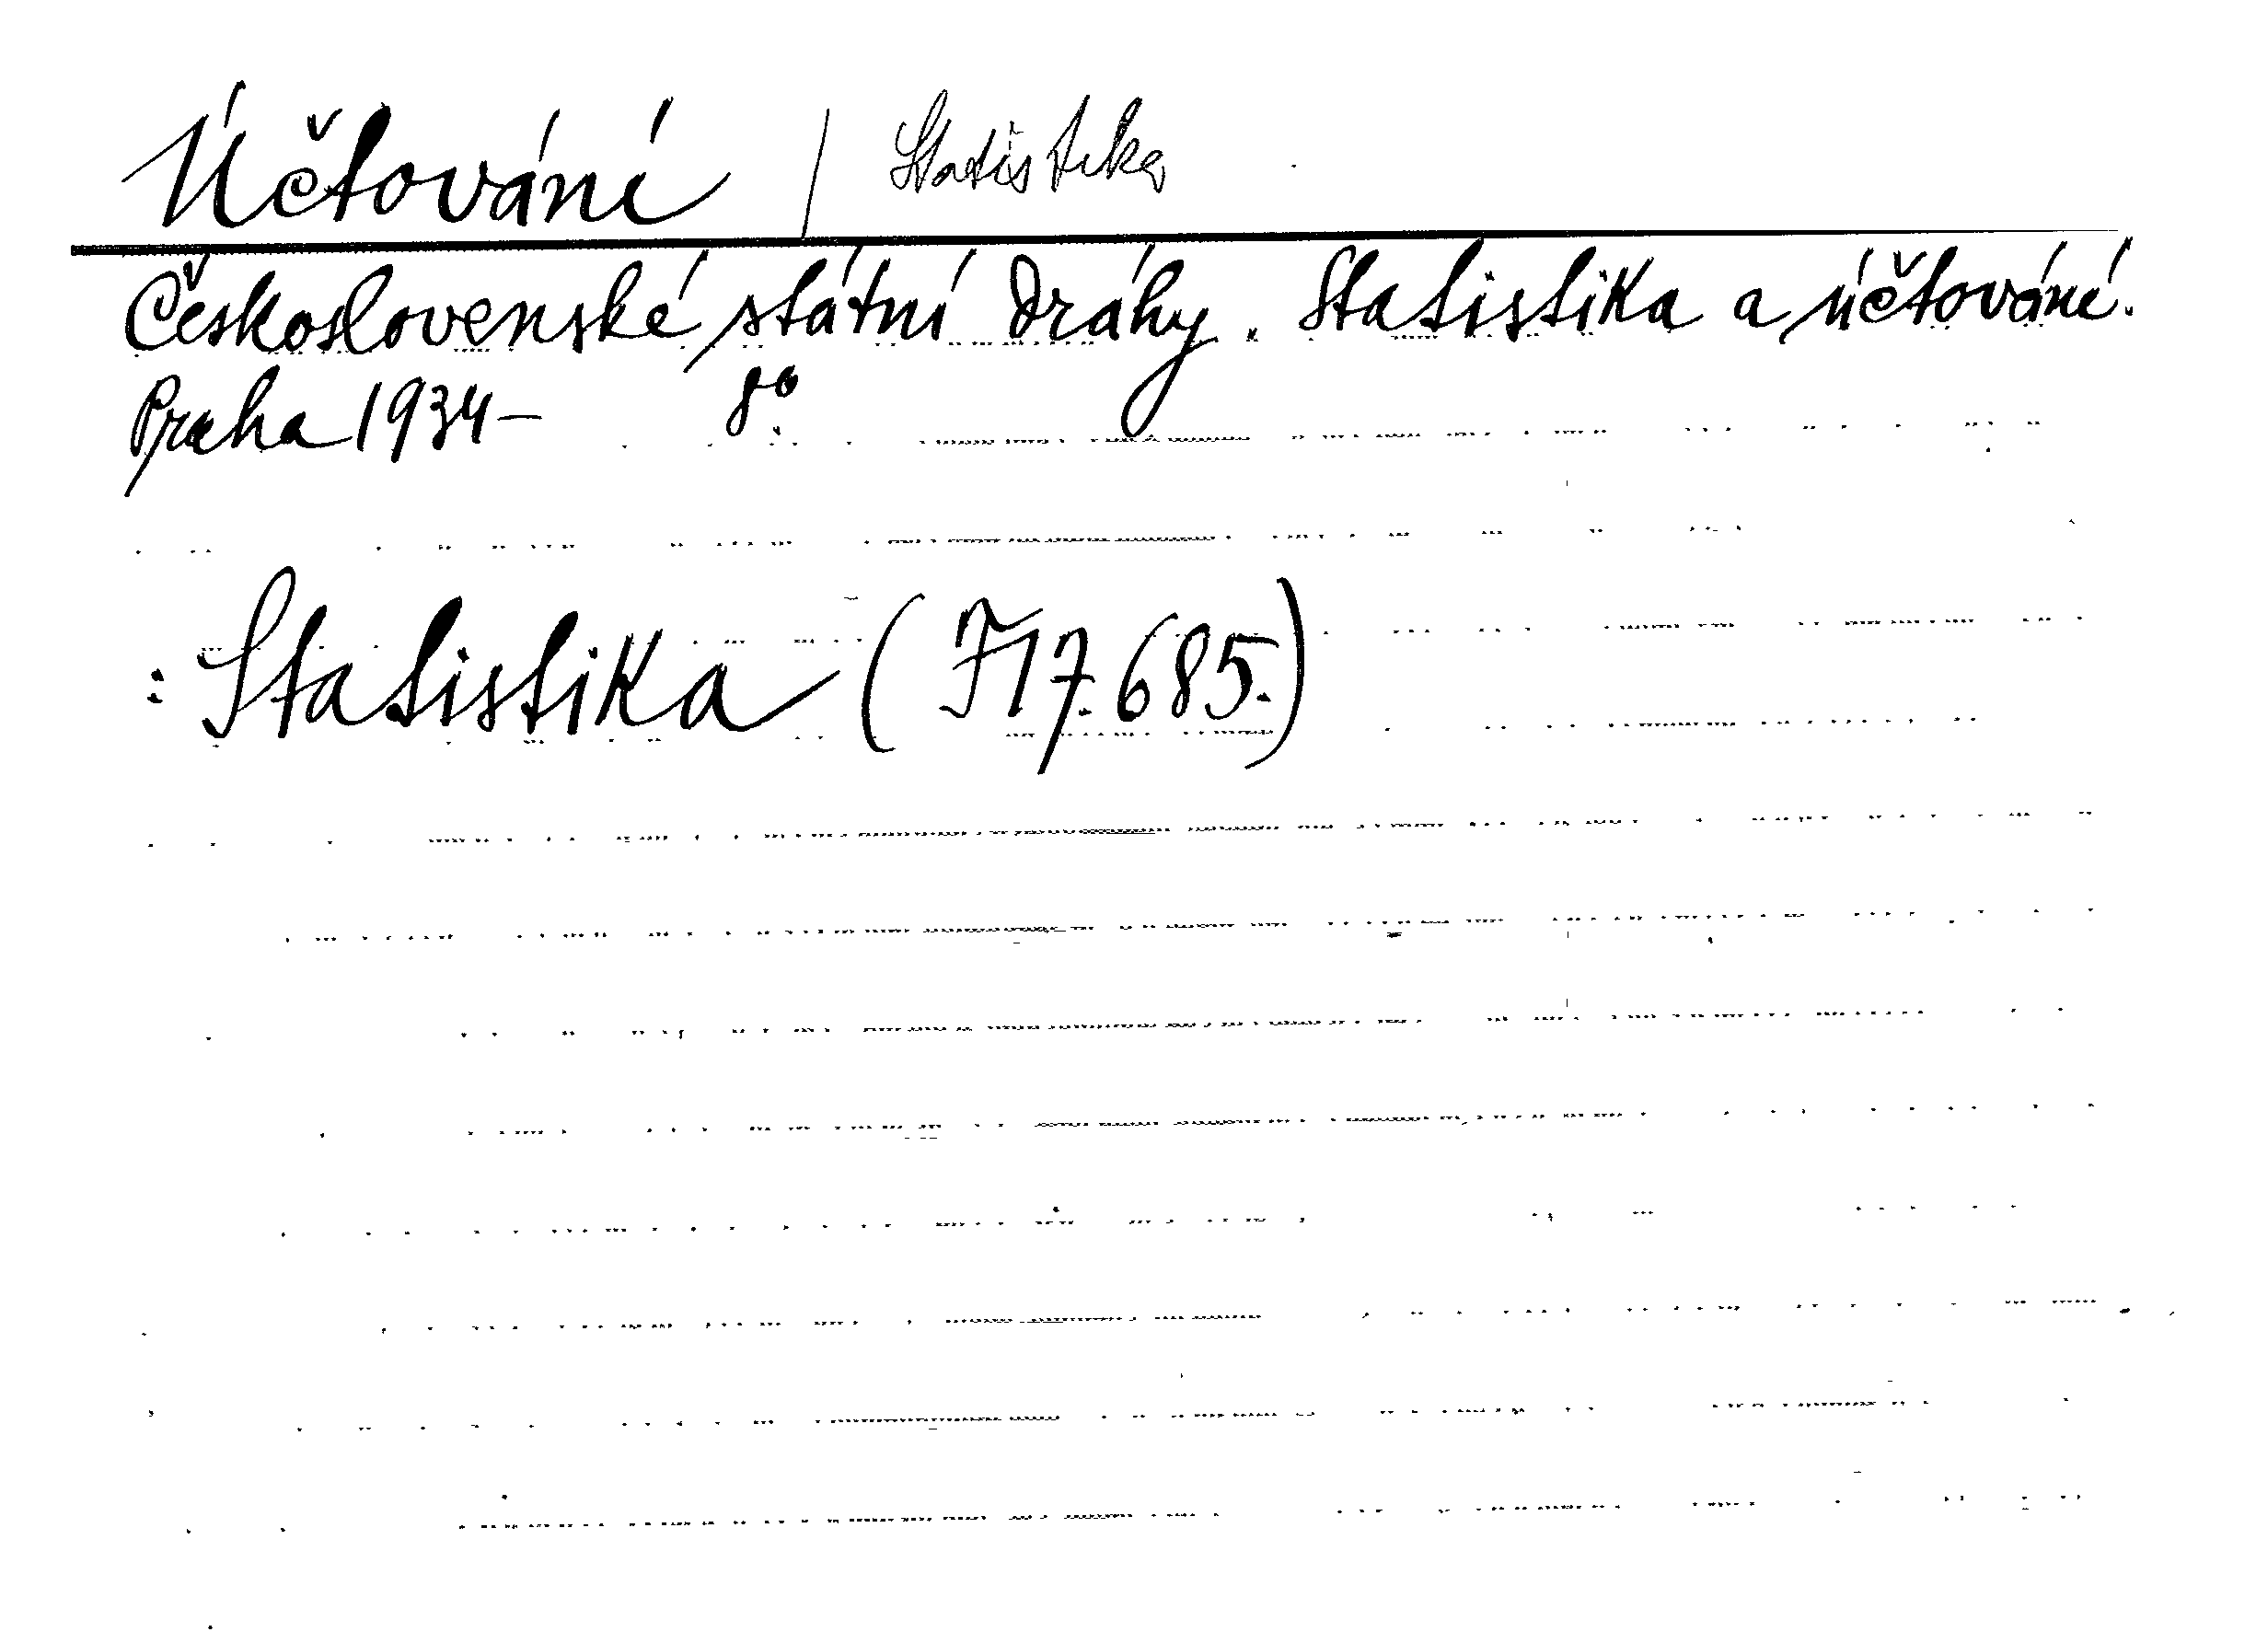 Účtování / Statistika
Československé státní dráhy. Statistika a účtování.
Praha 1934- 8°.
: Statistika ( F 17.685.)